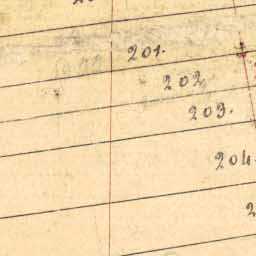 201.
202
203.
204.